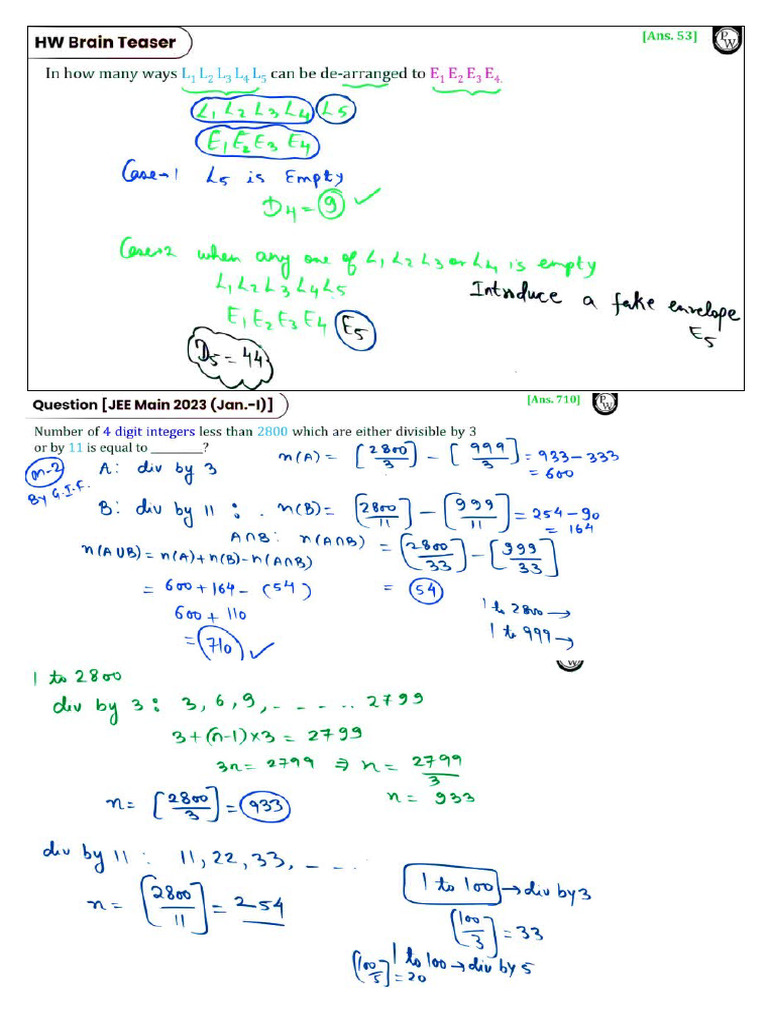 HW Brain Teaser
[Ans. 53]
PW
In how many ways L₁ L₂ L₃ L₄ L₅ can be de-arranged to E₁ E₂ E₃ E₄.
L₁ L₂ L₃ L₄ L₅
E₁ E₂ E₃ E₄
Case-1 L₅ is Empty
D₄ = 9 ✓
Case-2 when any one of L₁ L₂ L₃ or L₄ is empty
L₁ L₂ L₃ L₄ L₅
Introduce a fake envelope
E₅
E₁ E₂ E₃ E₄ E₅
D₅ = 44
Question [JEE Main 2023 (Jan.-I)]
[Ans. 710]
PW
Number of 4 digit integers less than 2800 which are either divisible by 3
or by 11 is equal to ________?
m-2
By G.I.F.
A: div by 3
n(A) = [2800/3] - [999/3] = 933 - 333
= 600
B: div by 11 : n(B) = [2800/11] - [999/11] = 254 - 90
= 164
A∩B: n(A∩B) = [2800/33] - [999/33]
= 54
n(A∪B) = n(A) + n(B) - n(A∩B)
= 600 + 164 - (54)
600 + 110
= 710 ✓
1 to 2800 →
1 to 999 →
W
1 to 2800
div by 3 : 3, 6, 9, - - - . . . 2799
3 + (n-1) × 3 = 2799
3n = 2799 ⇒ n = 2799/3
n = 933
n = [2800/3] = 933
div by 11 : 11, 22, 33, - - - . .
n = [2800/11] = 254
1 to 100 → div by 3
[100/3] = 33
1 to 100 → div by 5
[100/5] = 20